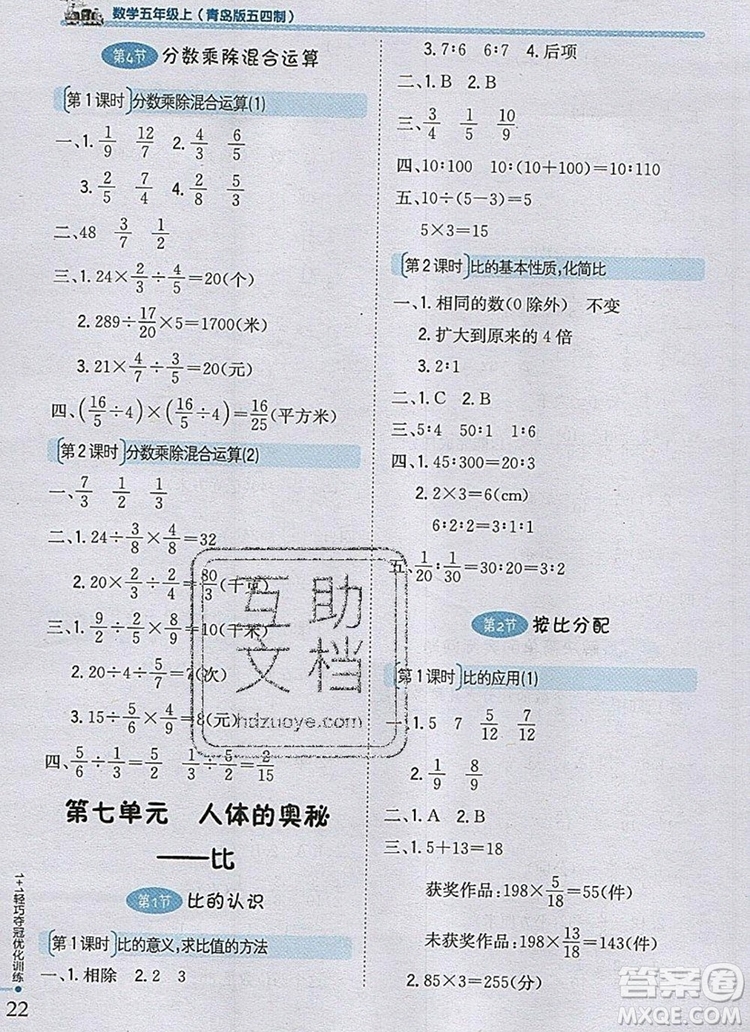 数学五年级上（青岛版五四制）
第4节 分数乘除混合运算
第1课时 分数乘除混合运算(1)
一、1. 1/9 12/7 2. 4/3 6/5
3. 2/5 7/4 4. 2/5 8/9
二、48 3/7 1/2
三、1. 24×2/3÷4/5=20(个)
2. 289÷17/20×5=1700(米)
3. 21×4/7÷3/5=20(元)
四、(16/5÷4)×(16/5÷4)=16/25(平方米)
第2课时 分数乘除混合运算(2)
一、7/3 1/2 1/3
二、1. 24÷3/8×4/8=32
2. 20×2/3÷2/4=80/3(千克)
三、1. 9/2÷2/5×8/9=10(千米)
2. 20÷4/7÷5=7(次)
3. 15÷5/8÷3=8(元)
四、5/6÷1/3=5/2 5/2÷1/2=5
第七单元 人体的奥秘
——比
第1节 比的认识
第1课时 比的意义,求比值的方法
一、1. 相除 2. 2 3
3. 7∶6 6∶7 4. 后项
二、1. B 2. B
三、3/4 1/5 10/9
四、10∶100 10∶(10+100)=10∶110
五、10÷(5－3)=5
5×3=15
第2课时 比的基本性质,化简比
一、1. 相同的数(0除外) 不变
2. 扩大到原来的4倍
3. 2∶1
二、1. C 2. B
三、5∶4 50∶1 10∶1
四、1. 45∶300=20∶3
2. 2×3=6(cm)
6∶2=3∶1
五、1/20∶1/30=30∶20=3∶2
第2节 按比分配
第1课时 比的应用(1)
一、1. 5 7 5/12 7/12
2. 1/9 8/9
二、1. A 2. C
三、1. 5+13=18
获奖作品:198×5/18=55(件)
未获奖作品:198×13/18=143(件)
2. 85×3=255(分)
1+1轻巧夺冠优化训练
22
互助文档
hdzuoye.com
答案圈
MXQE.COM